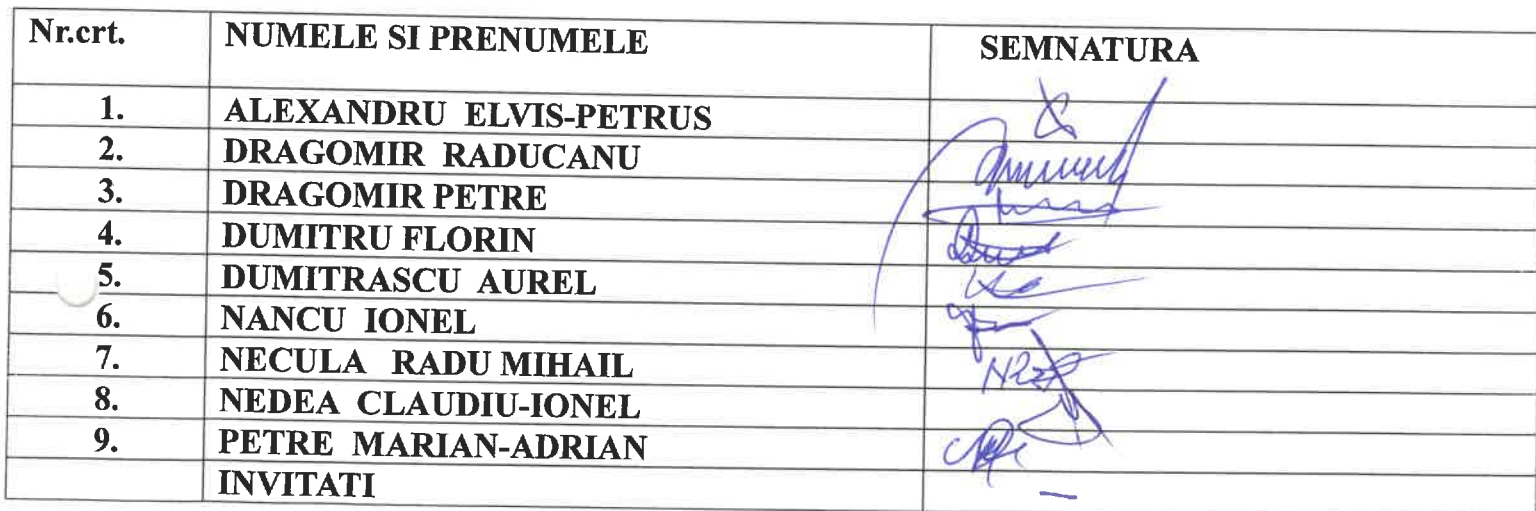 Nr.crt. NUMELE SI PRENUMELE SEMNATURA
1. ALEXANDRU ELVIS-PETRUS
2. DRAGOMIR RADUCANU
3. DRAGOMIR PETRE
4. DUMITRU FLORIN
5. DUMITRASCU AUREL
6. NANCU IONEL
7. NECULA RADU MIHAIL
8. NEDEA CLAUDIU-IONEL
9. PETRE MARIAN-ADRIAN
INVITATI —